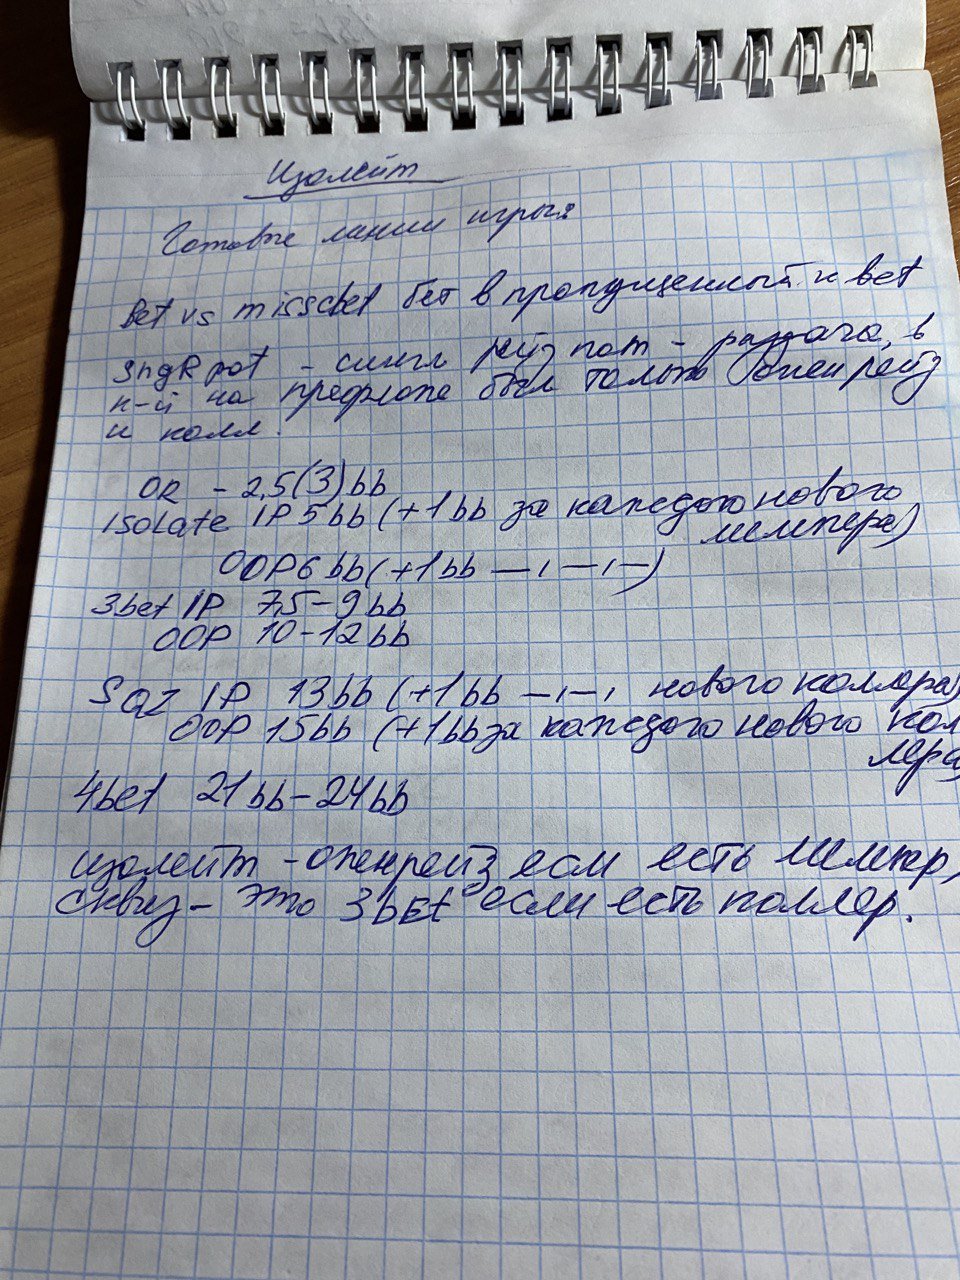 Изолейт
Готовые линии игры:
Bet vs misscbet бет в пропущенный. к bet
SngR pot - сингл рейз пот - раздача, в
к-й на префлопе был только опен рейз
и колл.
OR - 2,5(3)bb
Isolate IP 5bb (+1bb за каждого нового
лимпера)
OOP 6bb (+1bb —ı—ı—)
3bet IP 7,5-9bb
OOP 10-12bb
SQZ IP 13bb (+1bb —ı—ı нового коллера)
OOP 15bb (+1bb за каждого нового кол
лера)
4bet 21bb-24bb
изолейт - опенрейз есм есть лимпер,
Сквиз - это 3bEt если есть коллер.